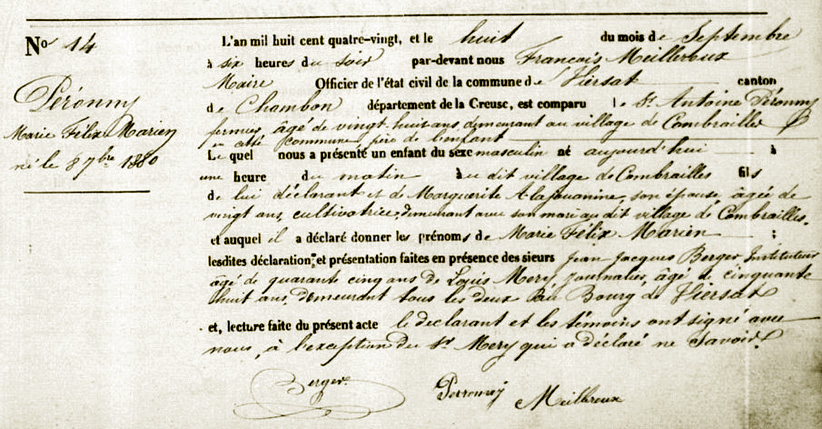 No 14
Péronny
Marie Félix Marien
né le 8 7bre 1880
L'an mil huit cent quatre-vingt, et le huit du mois de Septembre
à six heures du soir par-devant nous François Meilleroux
Maire Officier de l'état civil de la commune de Viersat canton
de Chambon département de la Creuse, est comparu le Sr Antoine Péronny
fermier, âgé de vingt huit ans demeurant au village de Combrailles
en cette commune père de l'enfant
Le quel nous a présenté un enfant du sexe masculin né aujourd'hui à
une heure du matin au dit village de Combrailles fils
de lui déclarant et de Marguerite Alajouanine, son épouse, âgée de
vingt ans, cultivatrice, demeurant avec son mari au dit village de Combrailles.
et auquel il a déclaré donner les prénoms de Marie Félix Marien ;
lesdites déclaration et présentation faites en présence des sieurs Jean Jacques Berger Instituteur
âgé de quarante cinq ans de Louis Mery journalier, âgé de cinquante
huit ans, demeurant tous les deux Bourg de Viersat
et, lecture faite du présent acte le déclarant et les témoins ont signé avec
nous, à l'exception du Sr Mery qui a déclaré ne Savoir.
Berger Perronny Meilleroux